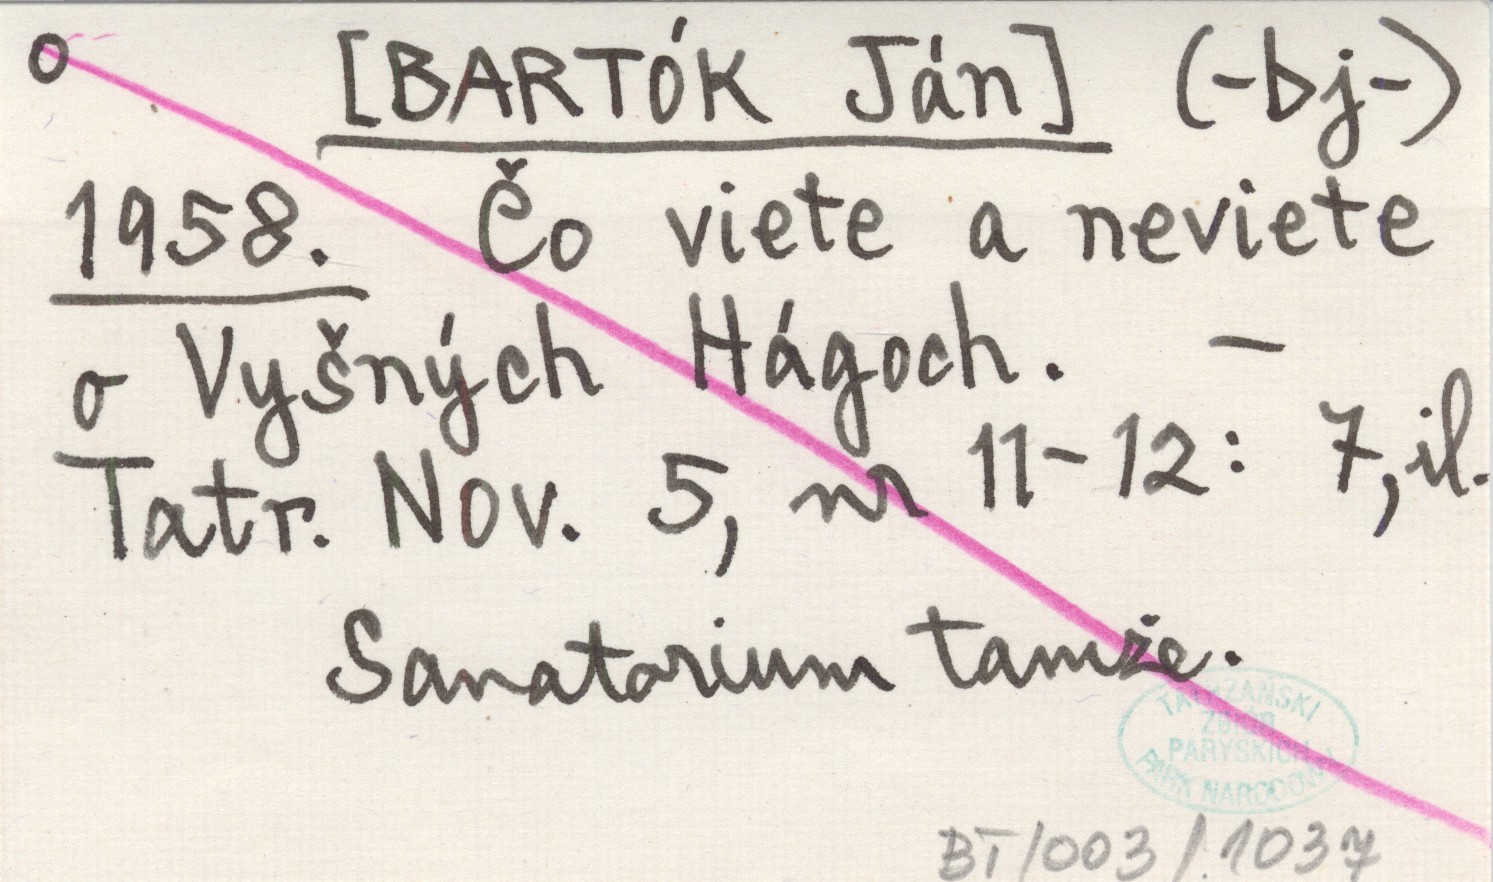 o [BARTÓK Ján] (-bj-)
1958. Čo viete a neviete
o Vyšných Hágoch. —
Tatr. Nov. 5, nr 11-12: 7, il.
Sanatorium tamże.
TATRZAŃSKI
ZBIÓR
PARYSKICH
PARK NARODOWY
BT/003/1037